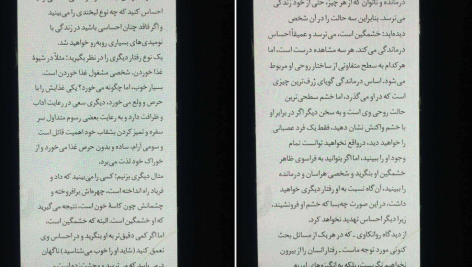 احساس کنید که چه نوع لبخندی را می‌بینید
و اگر فاقد چنان احساسی باشید در زندگی با
نومیدی‌های بسیاری روبه‌رو خواهید شد.
یک نوع رفتار دیگری را در نظر بگیرید؛ مثلاً در شیوهٔ
غذا خوردن. شخصی مشغول غذا خوردن است.
بسیار خوب، اما چگونه می‌خورد؟ یکی غذایش را با
حرص و ولع می‌خورد، دیگری سعی در رعایت آداب
و ظرافت دارد و به رعایت بعضی رسوم متداول سر
سفره و تمیز کردن بشقاب خود اهمیت قائل است
و سومی آرام، ساده و بدون حرص غذا می‌خورد و از
خوراک خود لذت می‌برد.
مثال دیگری بزنیم: کسی را می‌بینید که داد و
فریاد راه انداخته است، چهره‌اش برافروخته و
چشمانش چون کاسهٔ خون است، نتیجه می‌گیرید
که او خشمگین است. البته که خشمگین است،
اما اگر کمی دقیق‌تر به او بنگرید و در احساس وی
تعمق کنید (شاید او را خوب می‌شناسید) ناگهان
درمانده و ناتوان که از هر چیز، حتی از خود زندگی
می‌ترسد. بنابراین سه حالت را در آن شخص
دیده‌اید: خشمگین است، می‌ترسد و عمیقاً احساس
درماندگی می‌کند. هر سه مشاهده درست است، اما
هر کدام به سطح متفاوتی از ساختار روحی او مربوط
می‌شود. احساس درماندگی گویای ژرف‌ترین چیزی
است که در او می‌گذرد، اما خشم سطحی‌ترین
حالت روحی وی است و به سخن دیگر اگر در برابر او
با خشم واکنش نشان دهید، فقط یک فرد عصبانی
را خواهید دید، درواقع نخواهید توانست تمام
وجود او را ببینید، اما اگر بتوانید به فراسوی ظاهر
خشمگین او بنگرید و شخص هراسان و درمانده
را ببینید، آن گاه نسبت به او رفتار دیگری خواهید
داشت، در این صورت چه‌بسا که خشم او فرونشیند،
زیرا دیگر احساس تهدید نخواهد کرد.
از دیدگاه روانکاوی ـ که در هر یک از مسائل بحث
کنونی مورد توجه ماست ـ رفتار انسان را از بیرون